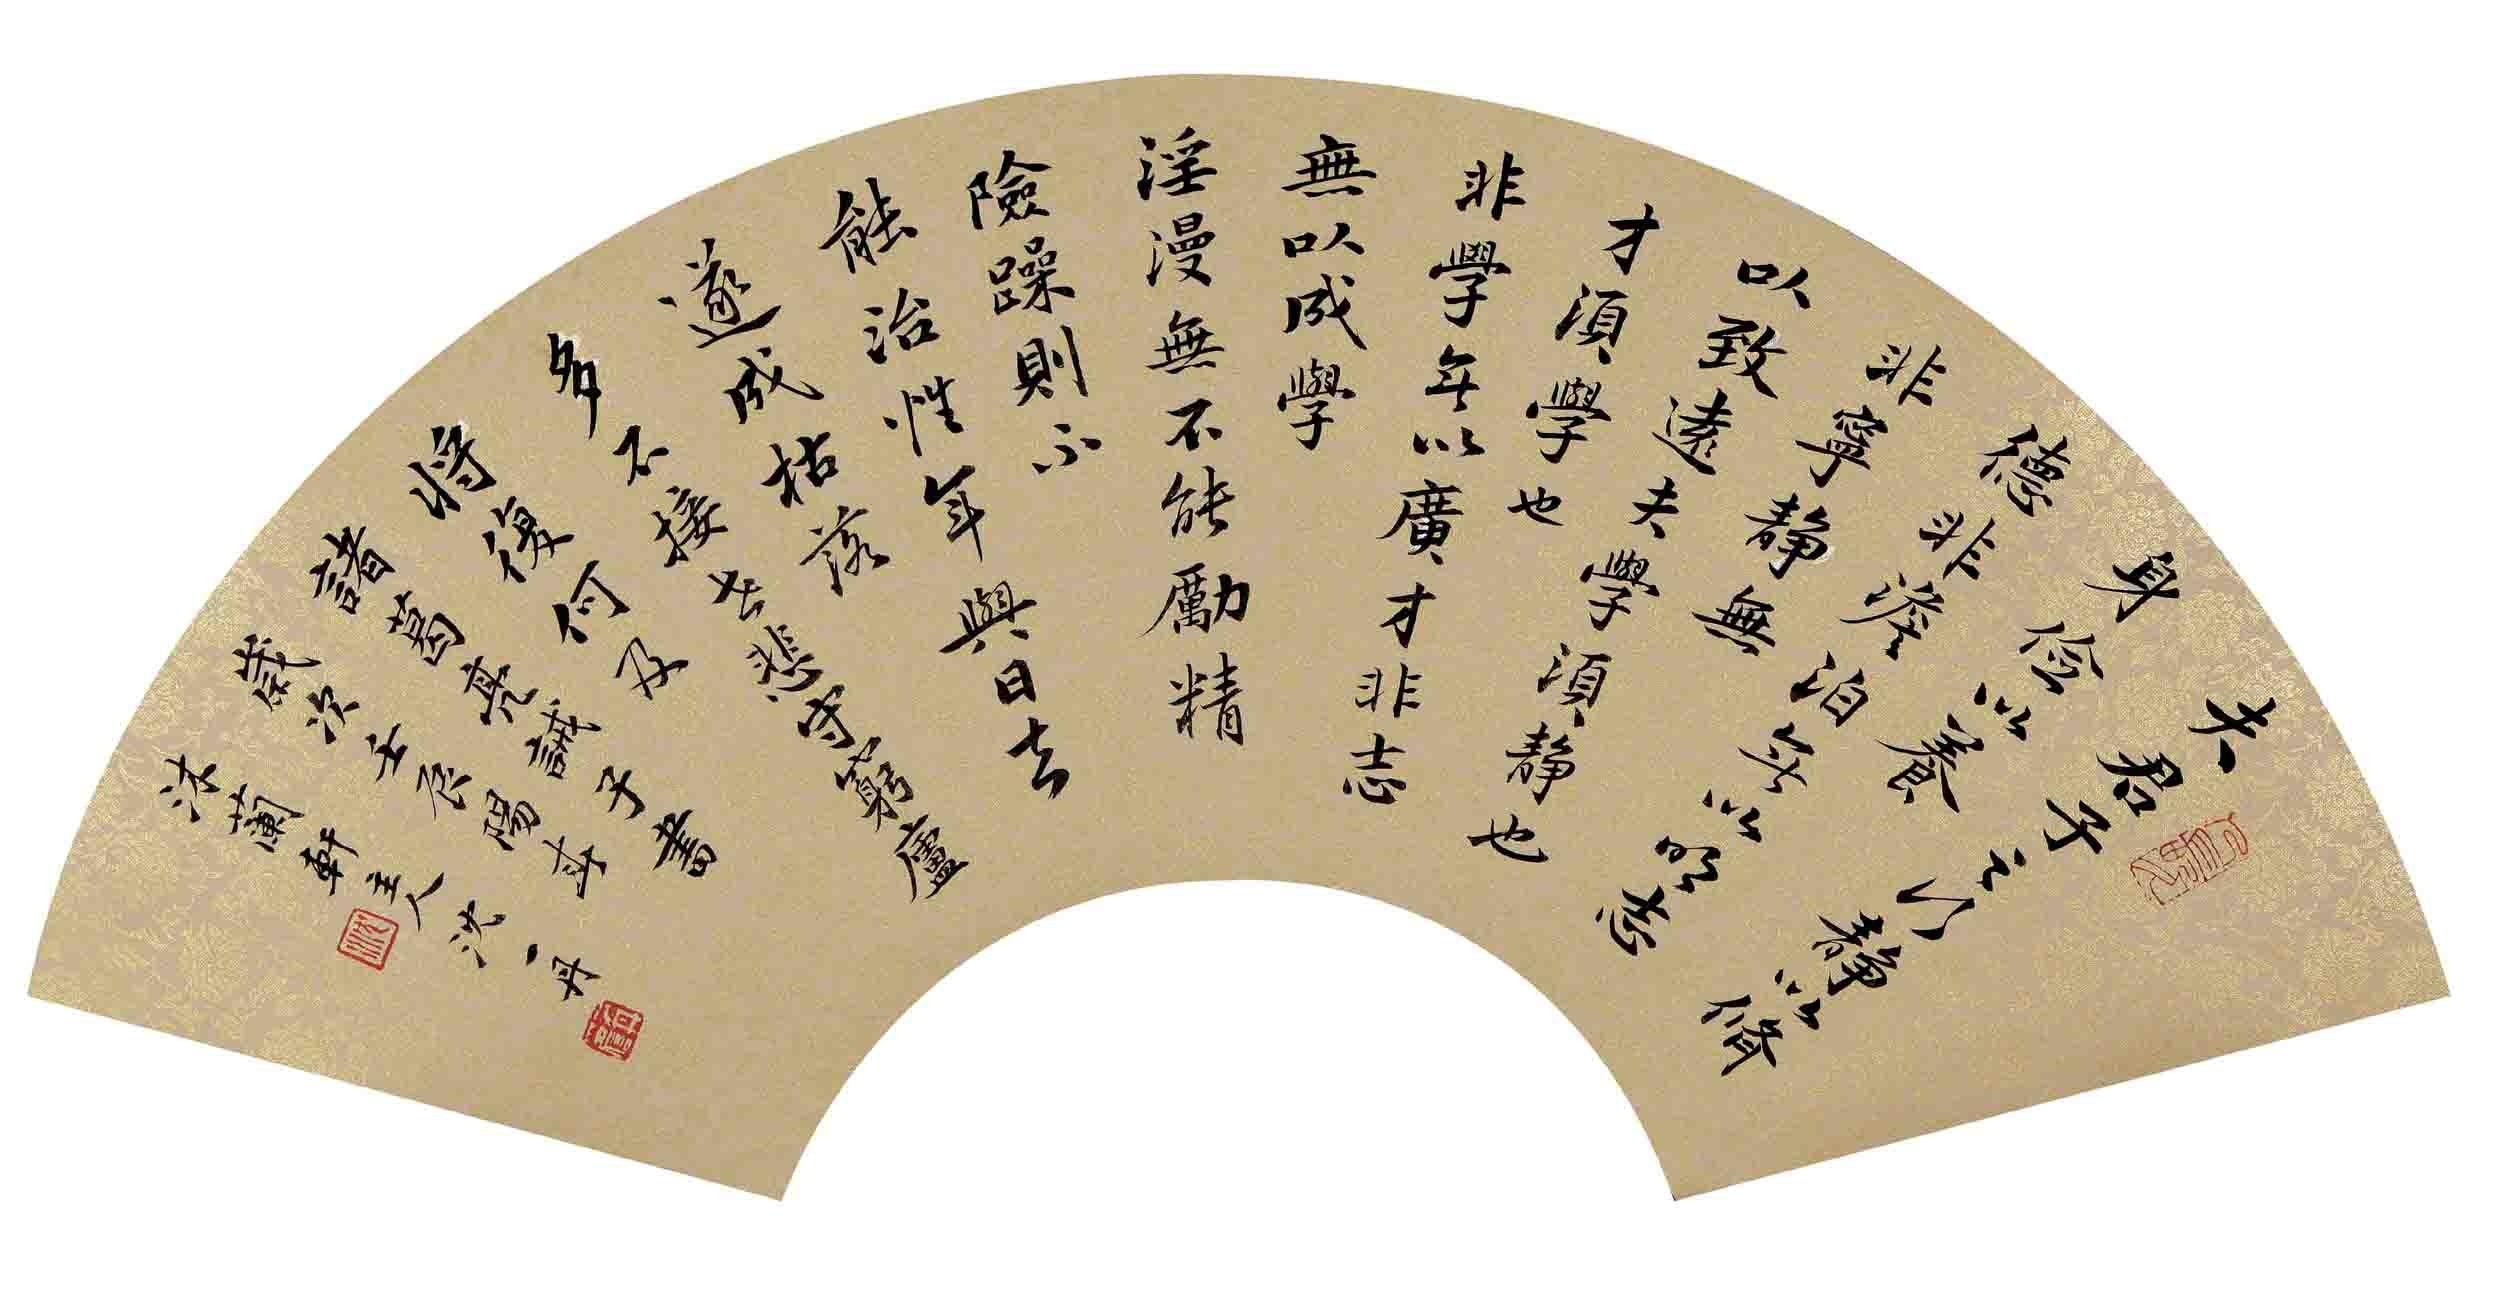 夫君子之行静以修
身俭以養
德非澹泊無以明志
非寧静無
以致遠夫學須静也
才須學也
非學無以廣才非志
無以成學
淫漫無不能勵精
險躁則不
能治性年與日去
遂成枯落
多不接世悲守窮廬
將復何及
諸葛亮誡子書
歲次壬辰陽春
沐蘭軒主人沈一丹